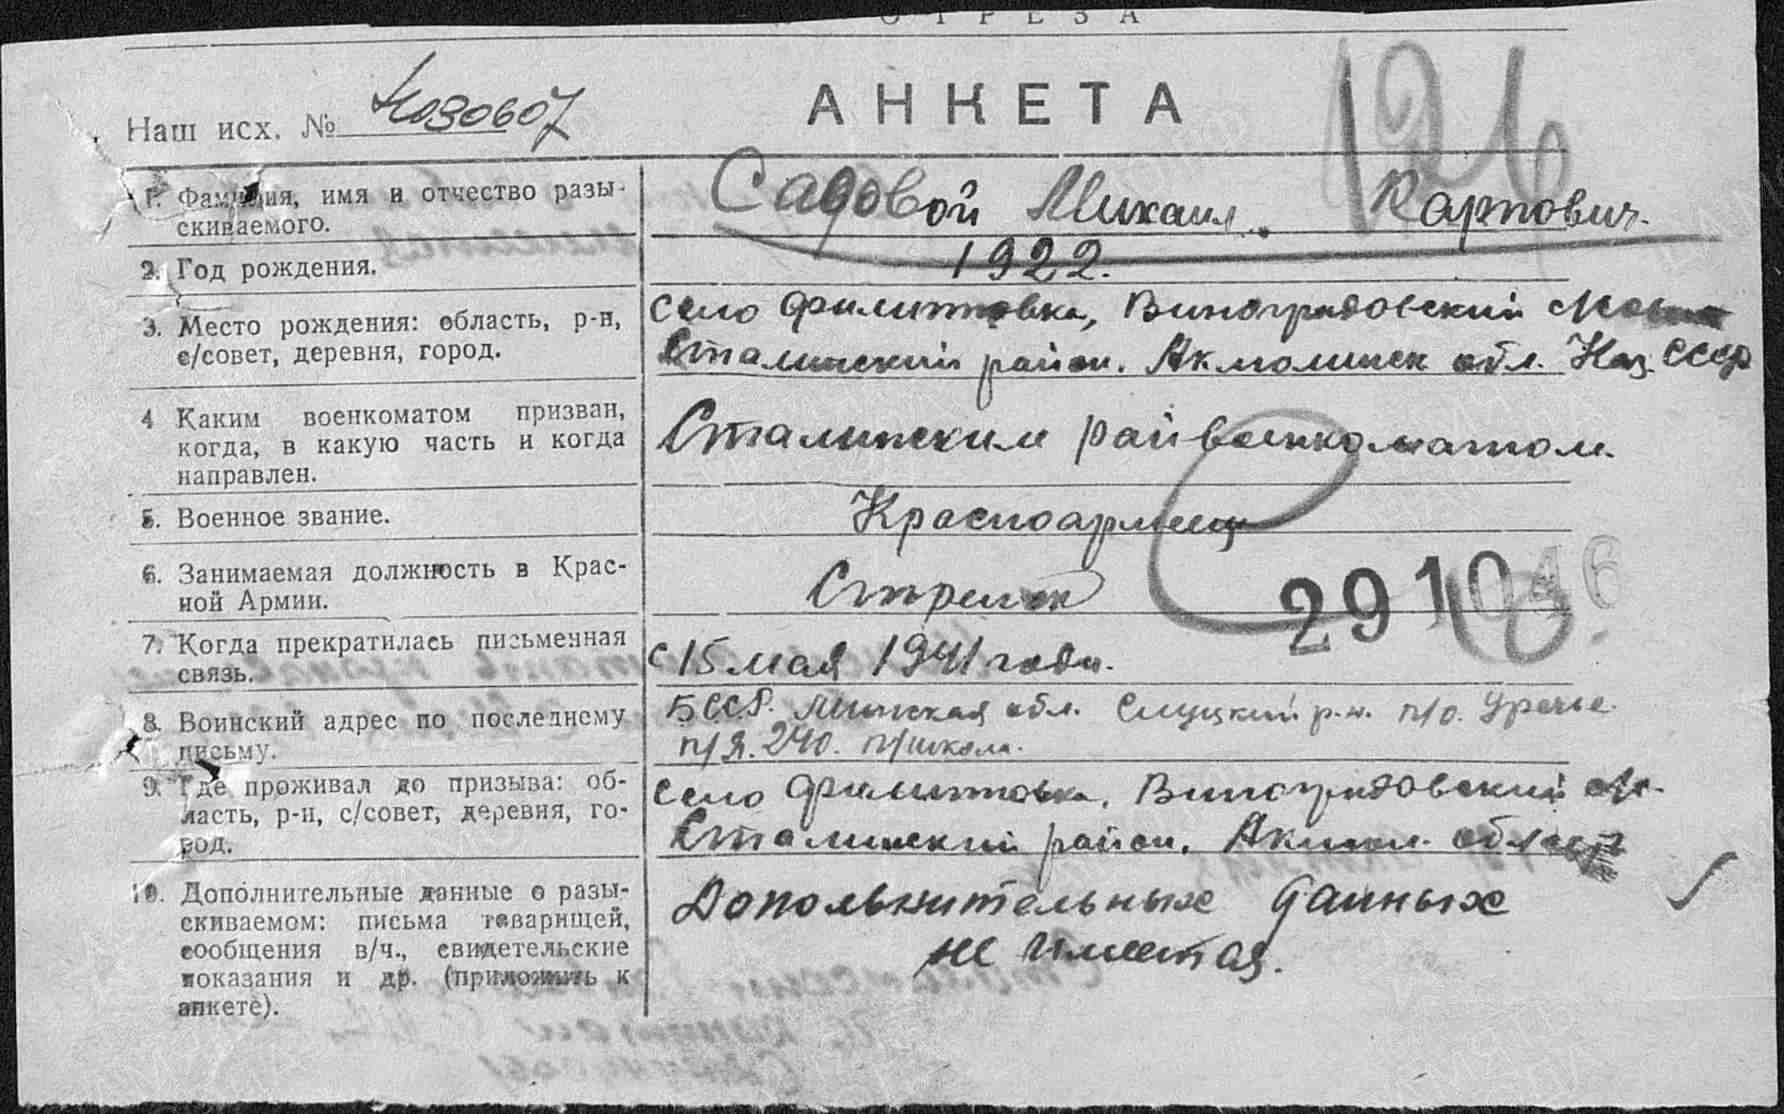 ОТРЕЗА
АНКЕТА
Наш исх. №
126
1. Фамилия, имя и отчество разы-
скиваемого.
Садовой Михаил Карпович.
2. Год рождения.
1922.
3. Место рождения: область, р-н,
с/совет, деревня, город.
село Филиповка, Виноградовский
Сталинский район. Акмолинск обл. Каз. СССР
4 Каким военкоматом призван,
когда, в какую часть и когда
направлен.
Сталинским райвоенкоматом.
5. Военное звание.
Красноармеец
6. Занимаемая должность в Крас-
ной Армии.
Стрелок
291046
7. Когда прекратилась письменная
связь.
с 15 мая 1941 года.
8. Воинский адрес по последнему
письму.
БССР. Минская обл. Слуцкий р-н. п/о. Уречье.
п/я. 240. п/школа.
9. Где проживал до призыва: об-
ласть, р-н, с/совет, деревня, го-
род.
село Филиповка, Виноградовский
Сталинский район. Акмол. област
10. Дополнительные данные о разы-
скиваемом: письма товарищей,
сообщения в/ч., свидетельские
показания и др. (приложить к
анкете).
Дополнительных данных
не имеется.